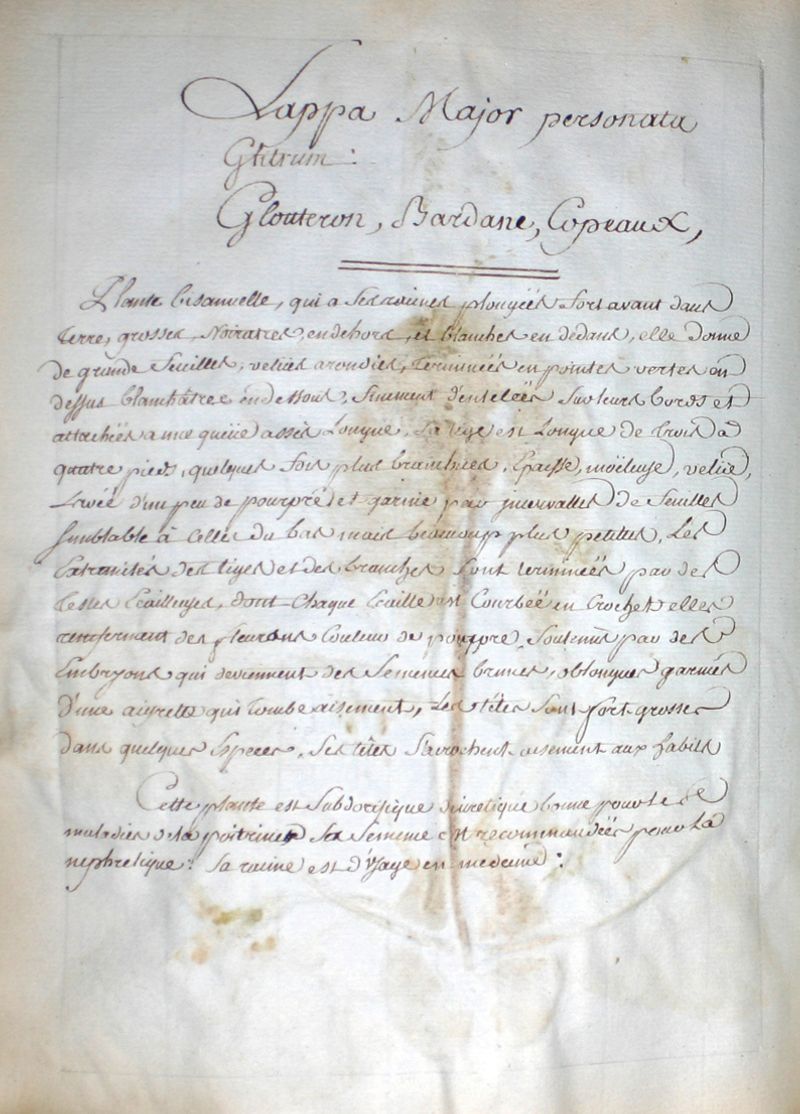 Lappa Major personata
Glouteron, Bardane, Copeaux,
Plante bisanuelle, qui a ses racines plongées fort avant dans
terre, grosses, Noiratres, en dehors, et blanches en dedans, elle donne
de grande feuilles, velües arondies, terminées en pointes vertes en
dessus blanchâtres en dessous, finement dentelées sur leurs bords et
attachées a une queüe assés Longue, Sa tige est Longue de trois a
quatre pieds, quelques fois plus branchües, Epaisse, moëleuse, velüe,
Lavée d'un peu de pourpre et garnie par intervalles de feuilles
semblable à Celles du bas mais beaucoup plus petites, Les
Extremités des tiges et des branches sont terminées par des
testes Ecailleuses, dont Chaque Ecaille est Courbée en Crochet elles
renferment des fleurons Couleur de pourpre, Soutenus par des
Embryons qui deviennent des Semences brunes, oblongues garnies
d'une aigrette qui tombe aisement, Les têtes sont fort grosses
dans quelques Especes, Ses têtes S'acrochent aisement aux habits
Cette plante est Sudorifique diuretique bonne pour les
maladies de la poitrine Sa Semence est recommandées pour la
nephretique: Sa racine est d'Usage en medecine: